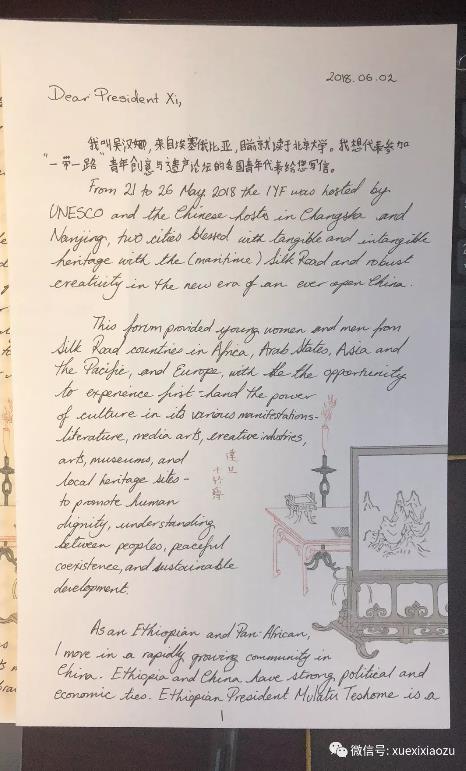 2018.06.02
Dear President Xi,
我叫吴汉娜,来自埃塞俄比亚,目前就读于北京大学。我想代表参加
“一带一路”青年创意与遗产论坛的各国青年代表给您写信。
From 21 to 26 May 2018 the IYF was hosted by
UNESCO and the Chinese hosts in Changsha and
Nanjing, two cities blessed with tangible and intangible
heritage with the (maritime) Silk Road and robust
creativity in the new era of an ever open China.
This forum provided young women and men from
Silk Road countries in Africa, Arab States, Asia and
the Pacific, and Europe, with the the opportunity
to experience first-hand the power
of culture in its various manifestations-
literature, media arts, creative industries,
arts, museums, and
local heritage sites-
to promote human
dignity, understanding
between peoples, peaceful
coexistence, and sustainable
development.
As an Ethiopian and Pan-African,
I move in a rapidly growing community in
China. Ethiopia and China have strong political and
economic ties. Ethiopian President Mulatu Teshome is a
1
微信号: xuexixiaozu